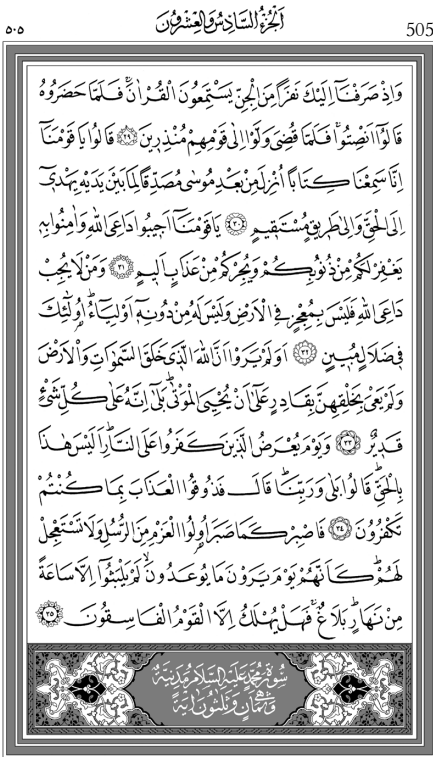 ٥٠٥ اَلْجُزْءُ السَّادِسُ وَالْعِشْرُونَ 505
وَاِذْ صَرَفْنَٓا اِلَيْكَ نَفَرًا مِنَ الْجِنِّ يَسْتَمِعُونَ الْقُرْاٰنَۚ فَلَمَّا حَضَرُوهُ
قَالُٓوا اَنْصِتُواۚ فَلَمَّا قُضِيَ وَلَّوْا اِلٰى قَوْمِهِمْ مُنْذِرِينَ ﴿٢٩﴾ قَالُوا يَا قَوْمَنَٓا
اِنَّا سَمِعْنَا كِتَابًا اُنْزِلَ مِنْ بَعْدِ مُوسٰى مُصَدِّقًا لِمَا بَيْنَ يَدَيْهِ يَهْدِٓي
اِلَى الْحَقِّ وَاِلٰى طَرِيقٍ مُسْتَقِيمٍ ﴿٣٠﴾ يَا قَوْمَنَٓا اَجِيبُوا دَاعِيَ اللّٰهِ وَاٰمِنُوا بِهِ
يَغْفِرْ لَكُمْ مِنْ ذُنُوبِكُمْ وَيُجِرْكُمْ مِنْ عَذَابٍ اَلِيمٍ ﴿٣١﴾ وَمَنْ لَا يُجِبْ
دَاعِيَ اللّٰهِ فَلَيْسَ بِمُعْجِزٍ فِي الْاَرْضِ وَلَيْسَ لَهُ مِنْ دُونِهِٓ اَوْلِيَٓاءُۜ اُو۬لٰٓئِكَ
فِي ضَلَالٍ مُبِينٍ ﴿٣٢﴾ اَوَلَمْ يَرَوْا اَنَّ اللّٰهَ الَّذِي خَلَقَ السَّمٰوَاتِ وَالْاَرْضَ
وَلَمْ يَعْيَ بِخَلْقِهِنَّ بِقَادِرٍ عَلٰٓى اَنْ يُحْيِيَ الْمَوْتٰىۜ بَلٰٓى اِنَّهُ عَلٰى كُلِّ شَيْءٍ
قَدِيرٌ ﴿٣٣﴾ وَيَوْمَ يُعْرَضُ الَّذِينَ كَفَرُوا عَلَى النَّارِۜ اَلَيْسَ هٰذَا
بِالْحَقِّۜ قَالُوا بَلٰى وَرَبِّنَاۜ قَالَ فَذُوقُوا الْعَذَابَ بِمَا كُنْتُمْ
تَكْفُرُونَ ﴿٣٤﴾ فَاصْبِرْ كَمَا صَبَرَ اُو۬لُوا الْعَزْمِ مِنَ الرُّسُلِ وَلَا تَسْتَعْجِلْ
لَهُمْۜ كَاَنَّهُمْ يَوْمَ يَرَوْنَ مَا يُوعَدُونَۙ لَمْ يَلْبَثُٓوا اِلَّا سَاعَةً
مِنْ نَهَارٍۜ بَلَاغٌۚ فَهَلْ يُهْلَكُ اِلَّا الْقَوْمُ الْفَاسِقُونَ ﴿٣٥﴾
سُورَةُ مُحَمَّدٍ عَلَيْهِ السَّلَامُ مَدَنِيَّةٌ
وَهِيَ ثَمَانٍ وَثَلٰثُونَ اٰيَةً